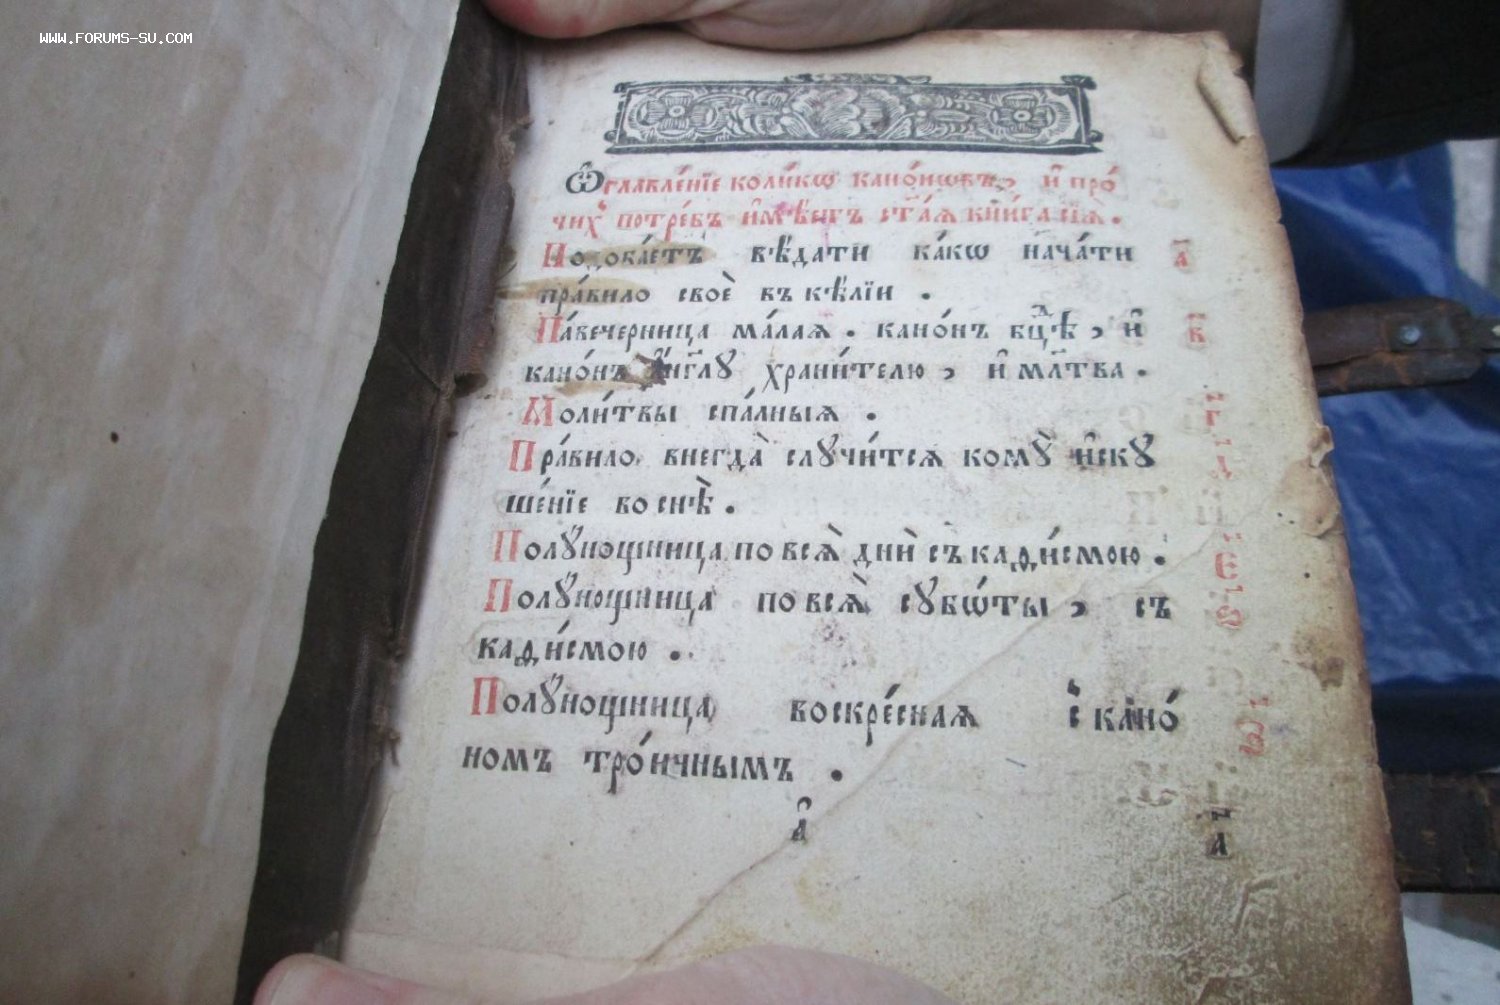 WWW.FORUMS-SU.COM
Ѡ҆главле́нїе коли́кѡ кано́нѡвъ, и҆ про́
чихъ потре́бъ и҆мѣетъ ст҃а́ѧ кни́га сїѧ̀.
Подоба́етъ вѣ́дати ка́кѡ нача́ти а҃
пра́вило своѐ въ кѣ́лїи .
Па́вечерница ма́лаѧ . кано́нъ бцⷣѣ, и҆ в҃
кано́нъ а҆́нг҃лу храни́телю, и҆ мл҃тва .
Моли́твы спа́лныѧ . г҃
Пра́вило, внегда̀ случи́тсѧ кому̀ и҆ску
ше́нїе во снѣ̀ .
Полу́нощница по всѧ̀ днѝ съ каѳи́смою . є҃
Полу́нощница по всѧ̀ субѡ́ты, съ ѕ҃
каѳи́смою .
Полу́нощница воскре́снаѧ с кано́
номъ тро́ичнымъ .
а҃